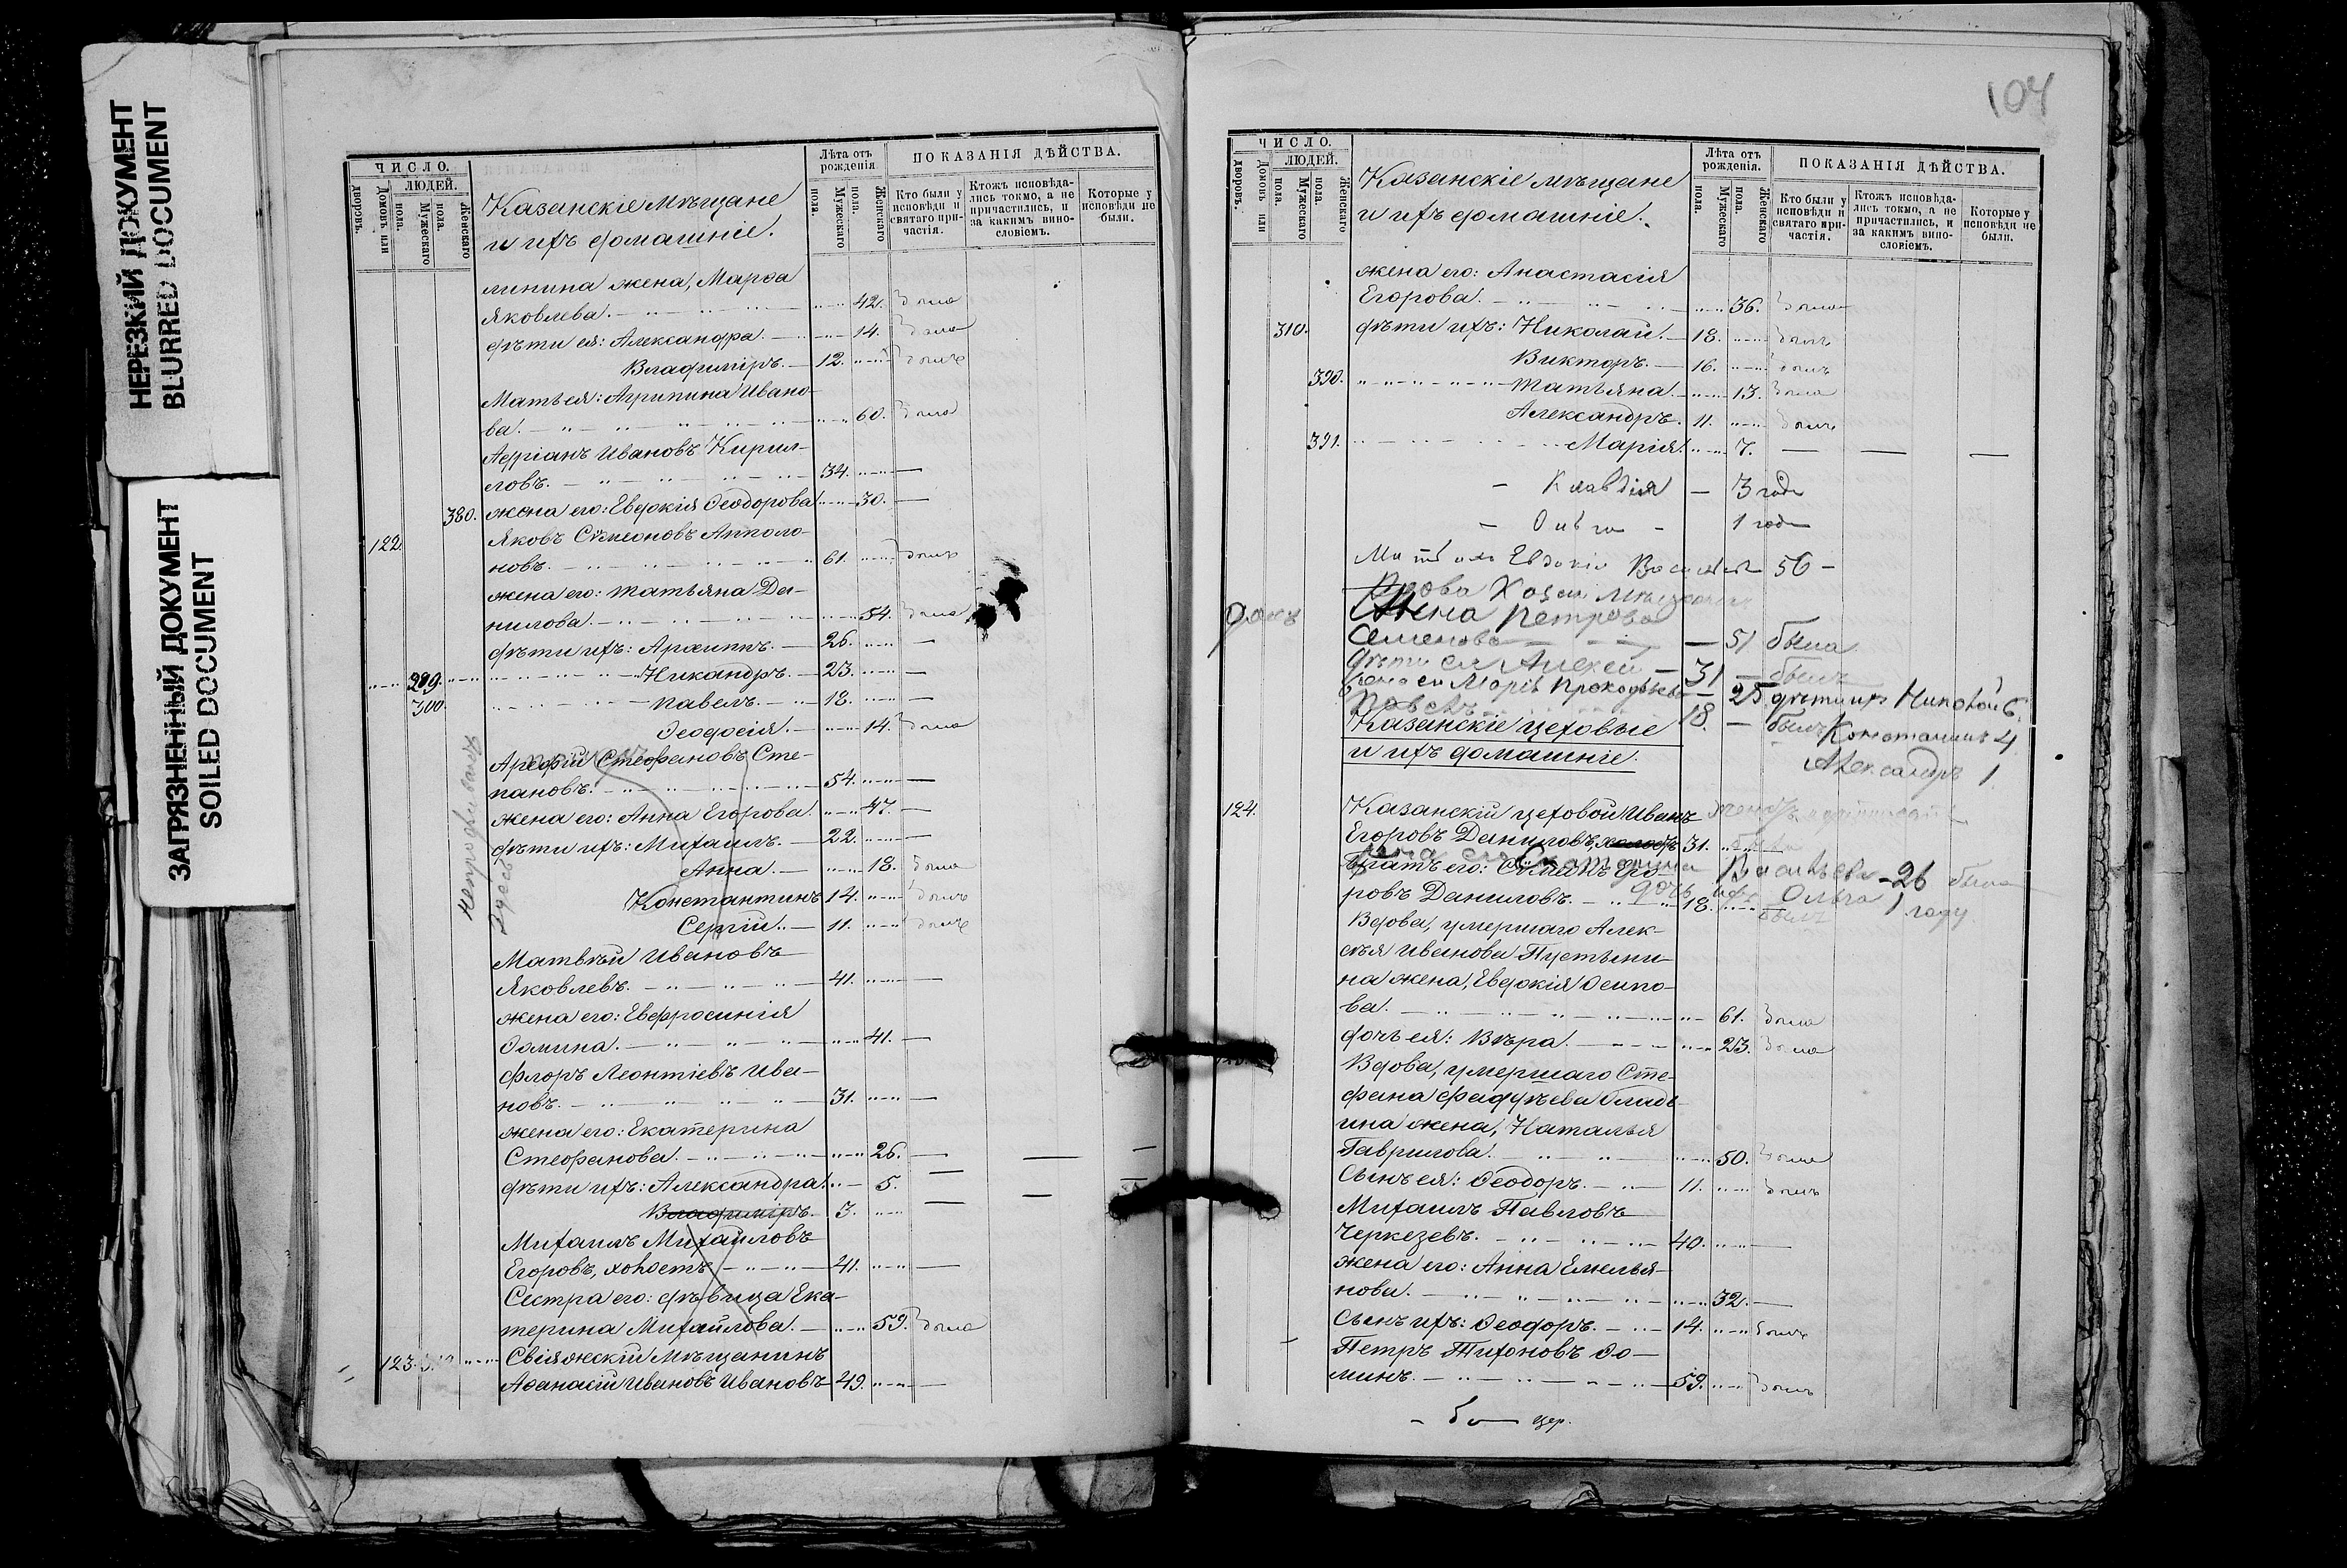 НЕРЕЗКИЙ ДОКУМЕНТ
BLURRED DOCUMENT
ЗАГРЯЗНЕННЫЙ ДОКУМЕНТ
SOILED DOCUMENT
ЧИСЛО.
ЛЮДЕЙ.
дворовъ.
Домовъ или
Мужескаго пола.
Женскаго
Казанскіе мѣщане
и ихъ домашніе.
Лѣта отъ рожденія
Мужескаго пола.
Женскаго пола.
ПОКАЗАНІЯ ДѢЙСТВА.
Кто были у исповѣди и святаго причастія.
Ктожъ исповѣдались токмо, а не причастились, и за какимъ винословіемъ.
Которые у исповѣди не были.
линина жена, Марѳа
Яковлева. 42. была
дѣти ея: Александра. 14. была
Владиміръ. 12. былъ
Мать ея: Агрипина Ивано-
ва. 60. была
Адріанъ Ивановъ Кирил-
ловъ. 34. —
380. жена его: Евдокія Ѳеодорова 30. —
122. Яковъ Сѵмеоновъ Апполо-
новъ. 61. былъ
жена его: Татьяна Да-
нилова. 54. была
дѣти ихъ: Архиппъ. 26. —
299. Никандръ. 23. —
300. Павелъ. 18. —
Ѳеодосія. 14. была
Арефій Стефановъ Сте-
пановъ. 54. —
жена его: Анна Егорова. 47. —
дѣти ихъ: Михаилъ. 22. —
Анна. 18. была
Константинъ 14. былъ
Сергій. 11. былъ
здесь
Матвѣй Ивановъ
Яковлевъ. 41. —
жена его: Евфросинія
Ѳомина. 41. —
Флоръ Леонтіевъ Ива-
новъ. 31. —
жена его: Екатерина
Стефанова. 26. —
дѣти ихъ: Александра. 5. —
Владиміръ. 3. —
Михаилъ Михайловъ
Егоровъ, холостъ 41. —
Сестра его: дѣвица Ека-
терина Михайлова. 59. была
123. Свіяжскій мѣщанинъ
Аѳанасій Ивановъ Ивановъ 49. —
104
ЧИСЛО.
ЛЮДЕЙ.
дворовъ.
Домовъ или
Мужескаго пола.
Женскаго пола.
Казанскіе мѣщане
и ихъ домашніе.
Лѣта отъ рожденія.
Мужескаго пола.
Женскаго пола.
ПОКАЗАНІЯ ДѢЙСТВА.
Кто были у исповѣди и святаго причастія.
Ктожъ исповѣдались токмо, а не причастились, и за какимъ винословіемъ.
Которые у исповѣди не были.
жена его: Анастасія
Егорова. 36. была
310. дѣти ихъ: Николай. 18. былъ
Викторъ. 16. былъ
390. Татьяна. 13. была
Александръ. 11. былъ
391. Марія. 7. — — —
Клавдія — 3 года
Ольга — 1 годъ
Мать ихъ Евдокія 56 —
Вдова Казан
Анна Петрова
Семенова — 51 была
дѣти ея Алексей — 31 — былъ
жена его Марія Прокофьева — 25 дѣти их Николай 6.
Павелъ 18. — былъ Константинъ 4
Александръ 1
Казанскіе цеховые
и ихъ домашніе.
124. Казанскій цеховой Иванъ
Егоровъ Даниловъ, холостъ 31.
жена его Екатерина Васильева — 26 была
братъ его: Сѵмеонъ Его-
дочь их Ольга 1 году
ровъ Даниловъ. 18. былъ
Вдова, умершаго Алек-
сѣя Иванова Пустыни-
на жена, Евдокія Осипо-
ва. 61. была
дочь ея: Вѣра. 23. была
Вдова, умершаго Сте-
фана Фаддѣева
ина жена, Наталья
Гаврилова. 50. была
Сынъ ея: Ѳеодоръ. 11. былъ
Михаилъ Павловъ
Черкезевъ. 40. —
жена его: Анна Емелья-
нова. 32. —
Сынъ ихъ: Ѳеодоръ. 14. былъ
Петръ Тихоновъ Ѳо-
минъ. 59. былъ